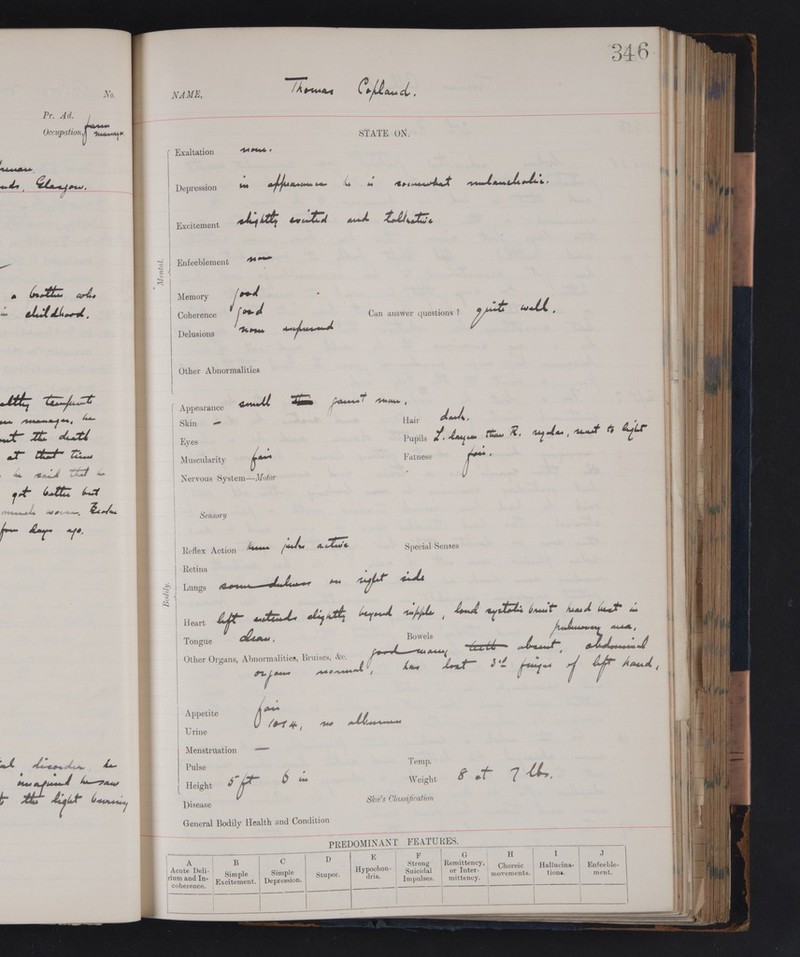 346
No.
Pr. Ad.
Occupation, farm manager
Glasgow.
a brother who
in childhood.
healthy temperate
manager, he
the death
at that time
he said that he
got better but
much worse.
four days ago.
disorder he
imagined he saw
the light burning
NAME, Thomas Copland.
STATE ON.
Mental.
Exaltation none.
Depression in appearance he is somewhat melancholic.
Excitement slightly excited and talkative
Enfeeblement none
Memory good
Coherence good Can answer questions? quite well.
Delusions none expressed
Other Abnormalities
Bodily.
Appearance small gaunt man.
Skin — Hair dark.
Eyes Pupils L. larger than R. regular, react to light
Muscularity fair Fatness fair.
Nervous System—Motor
Sensory
Reflex Action knee jerks active Special Senses
Retina
Lungs some dulness on right side
Heart left extends slightly beyond nipple, loud systolic bruit heard best in
pulmonary area,
Tongue clean. Bowels
Other Organs, Abnormalities, Bruises, &c. good many teeth absent, abdominal
organs normal, has lost 3rd finger of left hand,
Appetite fair
Urine 1014, no albumen
Menstruation —
Pulse Temp.
Height 5 ft 6 in Weight 8 st 7 lbs.
Disease Skae's Classification
General Bodily Health and Condition
PREDOMINANT FEATURES.
A B C D E F G H I J
Acute Delirium and Incoherence. Simple Excitement. Simple Depression. Stupor. Hypochondria. Strong Suicidal Impulses. Remittency, or Intermittency. Choreic movements. Hallucinations. Enfeeblement.